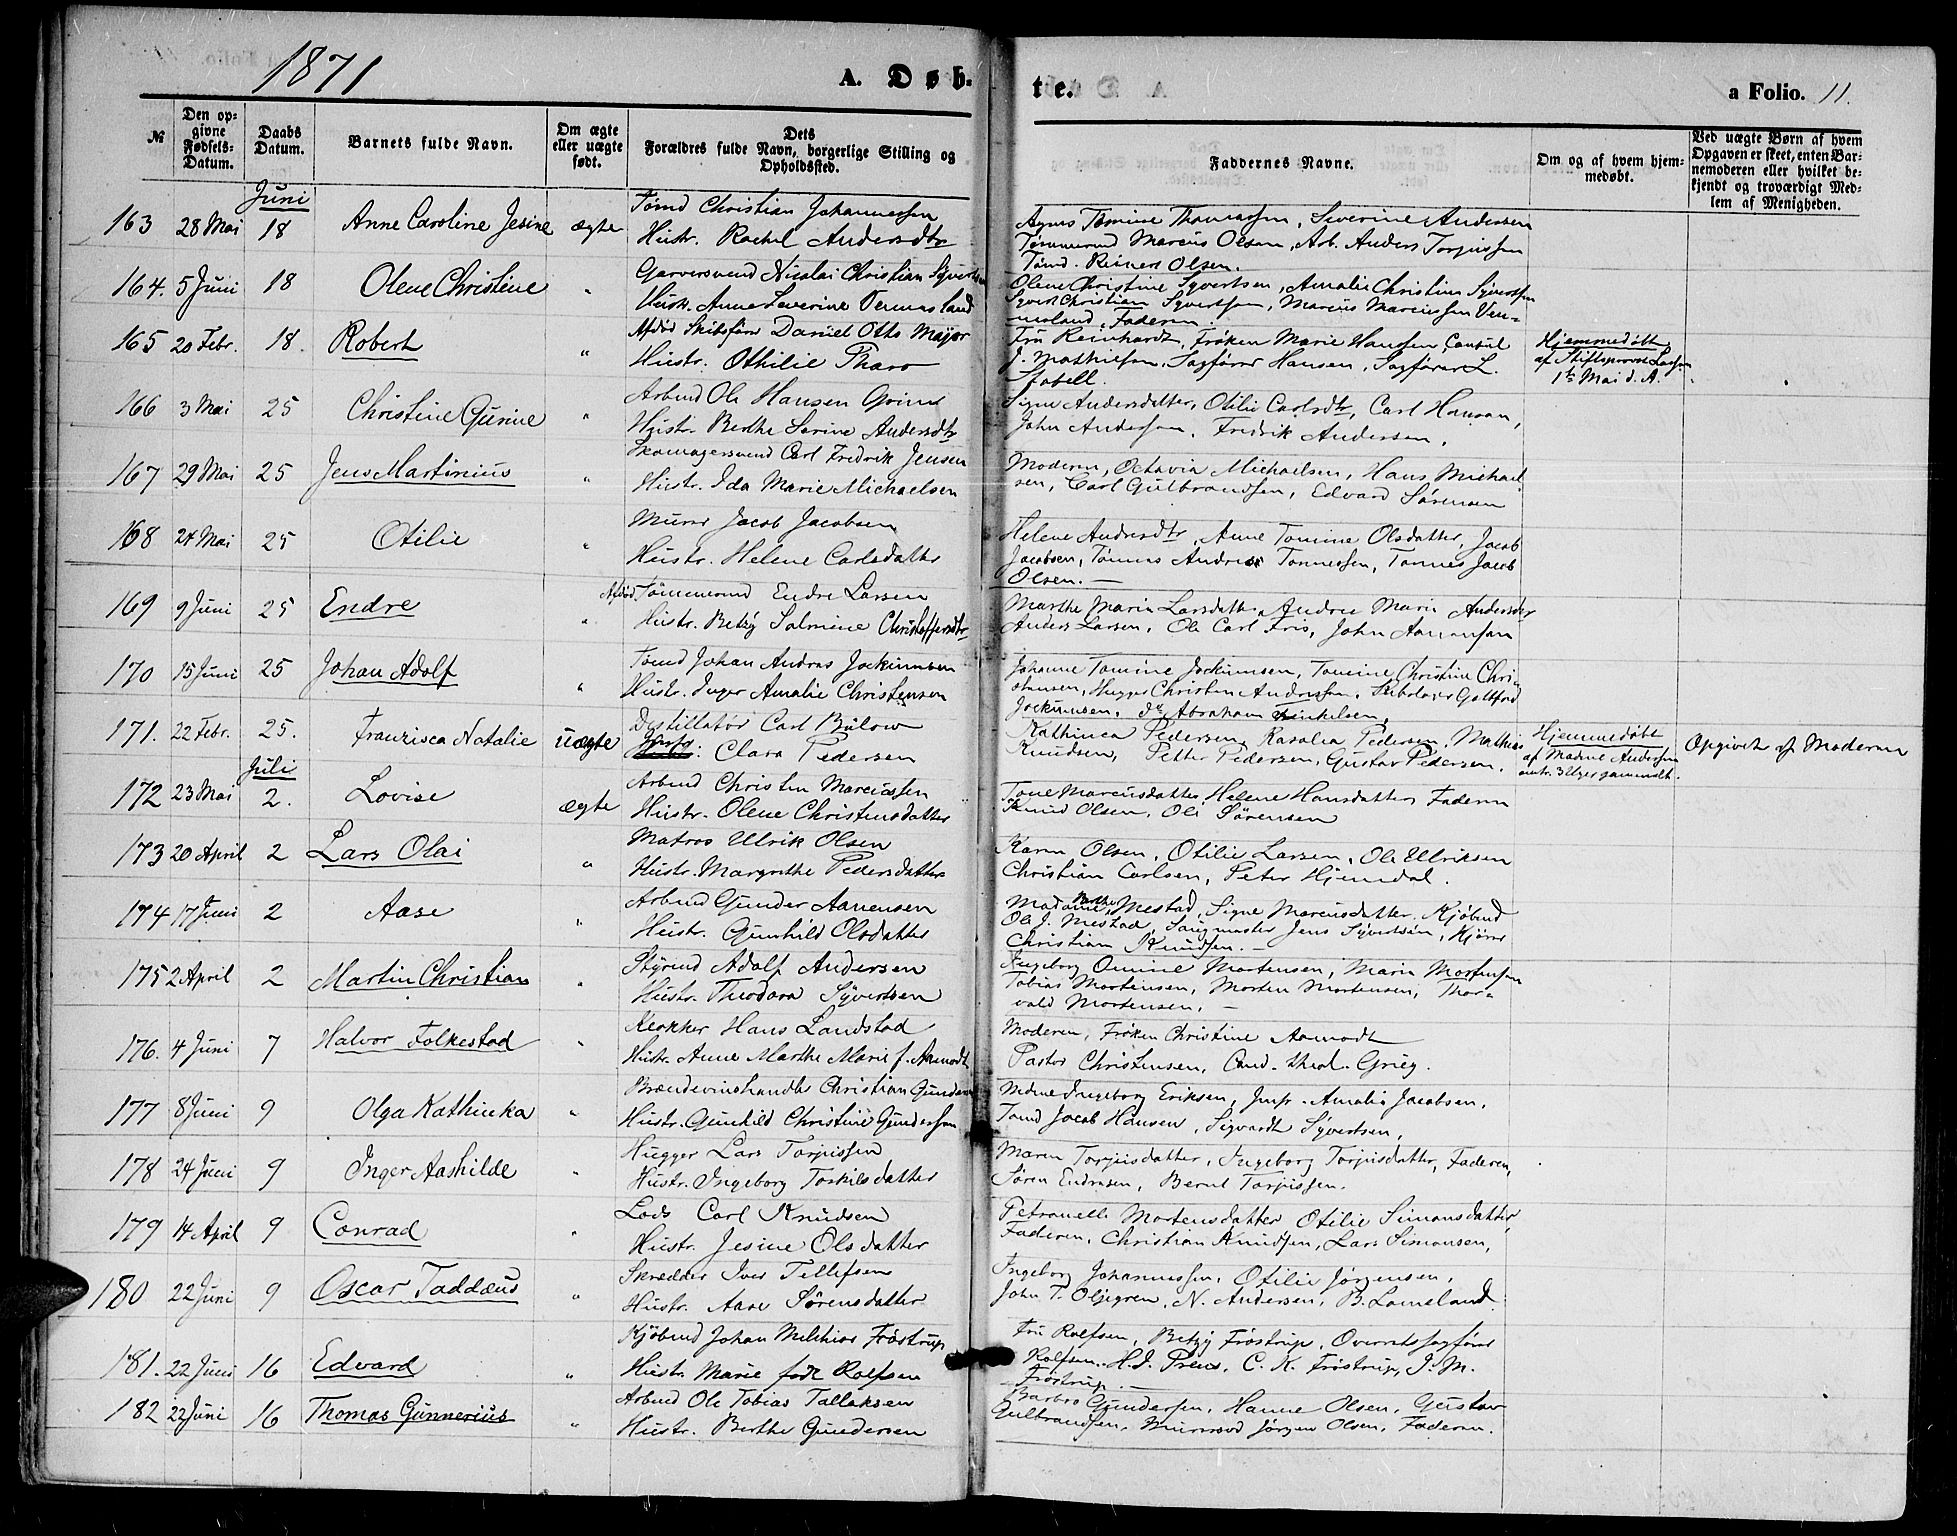 1871
A. Døb-
te.
a Folio. 11.
№
Den op-
givne
Fødsels-
Datum.
Daabs
Datum.
Barnets fulde Navn.
Om ægte
eller uægte
født.
Dets
Forældres fulde Navn, borgerlige Stilling og
Opholdssted.
Faddernes Navne.
Om og af hvem hjem-
medøbt.
Ved uægte Børn af hvem
Opgaven er skeet, enten Bar-
nemoderen eller hvilket be-
kjendt og troværdigt Med-
lem af Menigheden.
Juni
163 28 Mai 18 Anne Caroline Jesine ægte
Tømd Christian Johannessen
Hustr. Rachel Andersdtr
Agnes Tomine Thomassen, Severine Andersen
Tømmermd Marcus Olsen, Arb. Anders Torjussen
Tømd. Reinert Olsen.
164. 5 Juni 18 Olene Christine "
Garversvend Nicolai Christian Syvertsen
Hustr. Anne Severine Vennesland
Olene Christine Syvertsen, Amalie Christine Syvertsen
Syvert Christian Syvertsen, Marcus Marcussen Ven-
nesland, Faderen.
165 20 Febr. 18. Robert "
Afdød Skibsfører Daniel Otto Major
Hustr. Othilie Tharo
Fru Reinhardt, Frøken Marie Hansen, Consul
J. Mathiesen, Sagfører Hansen, Sagfører L.
Stabell.
Hjemmedøbt
af Stiftsprovst Lassen
1ste Mai d. A.
166 3 Mai 25 Christine Gurine "
Arbmd Ole Hansen Grim
Hustr. Berthe Sarine Andersdtr
Signe Andersdatter, Otilie Carlsdtr, Carl Hansen,
John Andersen, Fredrik Andersen.
167 29 Mai 25 Jens Martinius "
Skomagersvend Carl Fredrik Jensen
Hustr. Ida Marie Michaelsen
Moderen, Octavia Michaelsen, Hans Michael-
sen, Carl Gulbrandsen, Edvard Sørensen
168 24 Mai 25 Otilie "
Murer Jacob Jacobsen
Hustr. Helene Carlsdatter
Helene Andersdtr, Anne Tomine Olsdatter, Jacob
Jacobsen, Tønnes Andreas Tonnessen, Tønnes Jacob
Olsen. —
169 9 Juni 25 Endre "
Afdød Tømmermd Endre Larsen
Hustr. Betzy Salmine Christoffersdtr
Marthe Marie Larsdatter, Andrea Marie Andersdtr
Anders Larsen, Ole Carl Friis, John Aanonsen
170 15 Juni 25 Johan Adolf "
Tømd Johan Andreas Jockumsen
Hustr. Inger Amalie Christensen
Johanne Tomine Jockumsen, Tomine Christine Chri-
stensen, Hugger Christen Andersen, Skibstømr Gottfred
Jockumsen, do Abraham Terkelsen,
171. 22 Febr. 25. Franzisca Natalie uægte
Destillatør Carl Bülow
Clara Pedersen
Kathinca Pedersen, Rosalia Pedersen, Mathias
Knudsen, Petter Pedersen, Gustav Pedersen.
Hjemmedøbt
af Madme Andersen
omtr. 3 Uger gammelt.
Opgivet af Moderen
Juli
172 23 Mai 2. Lovise ægte
Arbmd Christen Marcussen
Hustr. Olene Christensdatter
Tone Marcusdatter, Helene Hansdatter, Faderen
Knud Olsen, Ole Sørensen
173 20 April 2 Lars Olai "
Matros Ulrik Olsen
Hustr. Margrethe Pedersdatter
Karen Olsen, Otilie Larsen, Ole Ulriksen
Christian Carlsen, Peter Hjemdal.
174 17 Juni 2 Aase "
Arbmd Gunder Aanensen
Hustr. Gunhild Olsdatter
Madame Mestad, Signe Marcusdatter, Kjøbmd
Ole J. Mestad, Sangmester Jens Syvertsen, Kjører
Christian Knudsen. —
175 2 April 2 Martin Christian "
Styrmd Adolf Andersen
Hustr. Theodora Syvertsen
Ingeborg Omine Mortensen, Maria Mortensen
Tobias Mortensen, Morten Mortensen, Thor-
vald Mortensen. —
176. 4 Juni 7 Halvor Folkestad "
Klokker Hans Landstad
Hustr. Anne Marthe Marie f. Aamodt
Moderen, Frøken Christine Aamodt
Pastor Christensen, Cand. theol. Grieg.
177 8 Juni 9 Olga Kathinka "
Brændevinshandler Christian Gundersen
Hustr. Gunhild Christine Gundersen
Madme Ingeborg Eriksen, Jmfr. Amalie Jacobsen,
Tømd Jacob Hansen, Sigvardt Syvertsen,
178 24 Juni 9 Inger Aashilde "
Hugger Lars Torjussen
Hustr. Ingeborg Toskilsdatter
Maren Torjusdatter, Ingeborg Torjusdatter, Faderen,
Søren Endresen, Bernt Torjussen.
179 14 April 9 Conrad "
Lods Carl Knudsen
Hustr. Jesine Olsdatter
Petronelle Mortensdatter Otilie Simonsdatter,
Faderen, Christian Knudsen, Lars Simonsen,
180 22 Juni 9 Oscar Taddæus "
Skrædder Iver Tellefsen
Hustr. Aase Sørensdatter
Ingeborg Johannessen, Otilie Jørgensen,
John T. Oljegren, N. Andersen, B. Lomeland.
181. 22 Juni 16 Edvard "
Kjøbmd Johan Melchior Frøstrup
Hustr. Marie født Rolfsen
Fru Rolfsen, Betzy Frøstrup, Overretssagfører
Rolfsen, H. J. Preus, C. K. Frøstrup, J. M.
Frøstrup. —
182 22 Juni 16 Thomas Gunnerius "
Arbmd Ole Tobias Tallaksen
Hustr. Berthe Gundersen
Barbro Gundersen, Hanne Olsen, Gustav
Gulbrandsen, Murersvd Jørgen Olsen, Faderen.